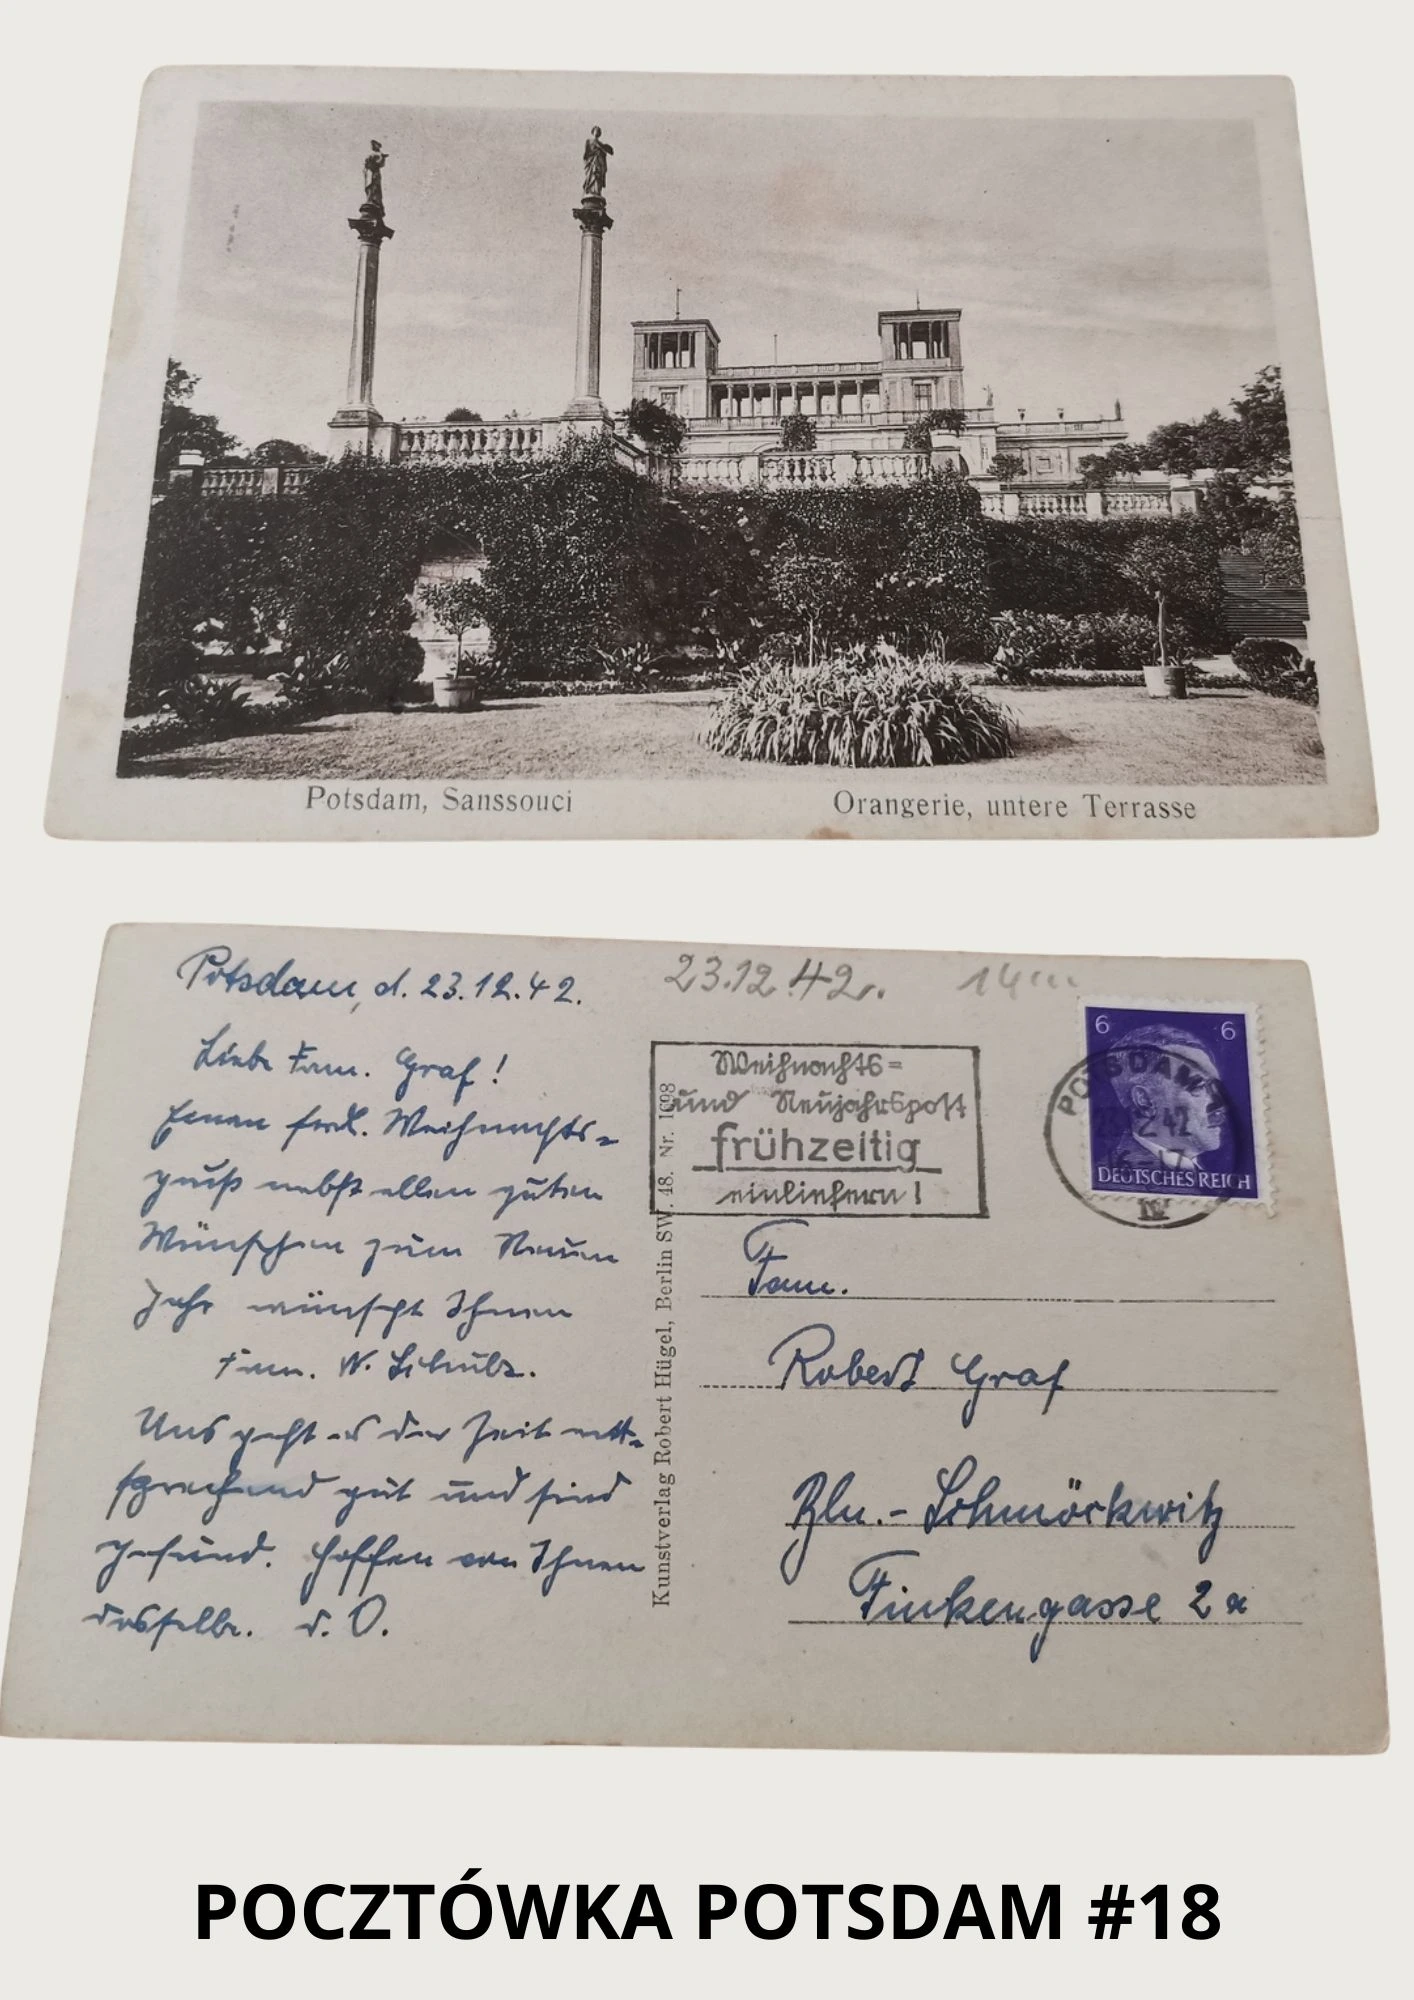 Potsdam, Sanssouci
Orangerie, untere Terrasse
Potsdam, d. 23.12.42.
Liebe Fam. Graf!
Einen frdl. Weihnachts-
gruß nebst allen guten
Wünschen zum Neuen
Jahr wünscht Ihnen
Fam. W. Schulz.
Uns geht es der Zeit ent-
sprechend gut und sind
gesund. Hoffen von Ihnen
dasselbe. d. O.
23.12.42r.
Kunstverlag Robert Hügel, Berlin SW. 48. Nr. 1698
Weihnachts=
und Neujahrspost
frühzeitig
einliefern!
6 6
DEUTSCHES REICH
POTSDAM
42
Fam.
Robert Graf
Bln.-Schmöckwitz
Finkengasse 2
POCZTÓWKA POTSDAM #18